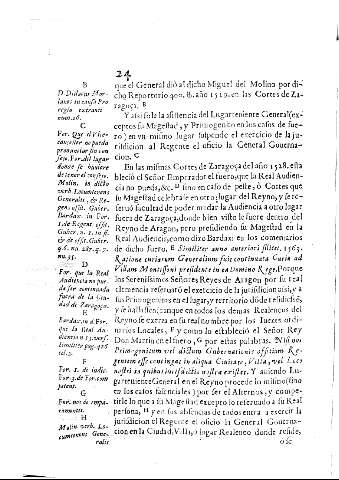 24
B
D. Didacus Mor-
lanes in causa Pro
regis extranei
num. 26.
C
For. Que el Vice-
canceller no pueda
pronunciar sin con-
sejo. For. del lugar
donde se huviere
de tener el consejo.
Molin. in dicto
verb. Locumtenens
Generalis, & Re-
gens offic. Guber.
Bardax. in For.
1. de Regent. offic.
Guber. n. 1. in fi.
D
For. que la Real
Audiencia no pue-
da ser nominada
fuera de la Ciu-
dad de Zaragoça.
E
Bardax. in d. For.
que la Real Au-
diencia
F
For. 1. de iudic.
For. 3. de For. com
petent.
G
H
Molin. verb. Lo-
cumtenens Gene-
ralis
que el General diò al dicho Miguel del Molino por di-
cho Reportorio 400. ss. año 1519. en las Cortes de Za-
ragoça. B
Y assi solo la assistencia del Lugarteniente General (ex-
ceptos su Magestad, y Primogenito en los casos de fue-
ro) en vn mismo lugar suspende el exercicio de la ju-
risdicion al Regente el oficio la General Governa-
cion. C
En las mismas Cortes de Zaragoça del año 1528. esta
bleciò el Señor Emperador el fuero, que la Real Audien-
cia no pueda, &c. D sino en caso de peste, ò Cortes que
su Magestad celebrare en otro lugar del Reyno, y se re-
servò facultad de poder mudar la Audiencia a otro lugar
fuera de Zaragoça, donde bien visto le fuere dentro del
Reyno de Aragon, pero presidiendo su Magestad en la
Real Audiencia, como dize Bardaxi en los comentarios
de dicho fuero. E Similiter anno anteriori scilicet, 1563.
Ratione curiarum Generalium fuit continuata Curia ad
Villam Montissoni presidente in ea Domino Rege. Porque
los Serenissimos Señores Reyes de Aragon por su real
clemencia refervarò el exercicio de la jurisdicion assi, y a
sus Primogenitos en el lugar, y territorio dòde residiessè,
y se hallassen, aunque en todos los demas Realencos del
Reyno se exerza en su real nombre por los Iuezes ordi-
narios Locales, F y como lo estableciò el Señor Rey
Don Martin en el fuero, G por estas palabras. Nisi nos
Primogenitum vel dictum Gubernationis officium Re-
gentem esse contingat in aliqua Civitate, Villa, vel Loco
Y siendo Lu-
garteniente General en el Reyno procede lo mismo (sino
en los casos forenciales) por ser el Alternus, y compe-
tirle lo que a su Magestad excepto lo reservado a su Real
persona, H y en sus absencias de todos entra a exercir la
jurisdicion el Regente el oficio la General Governa-
cion en la Ciudad, Villa, ò lugar Realenco donde reside,